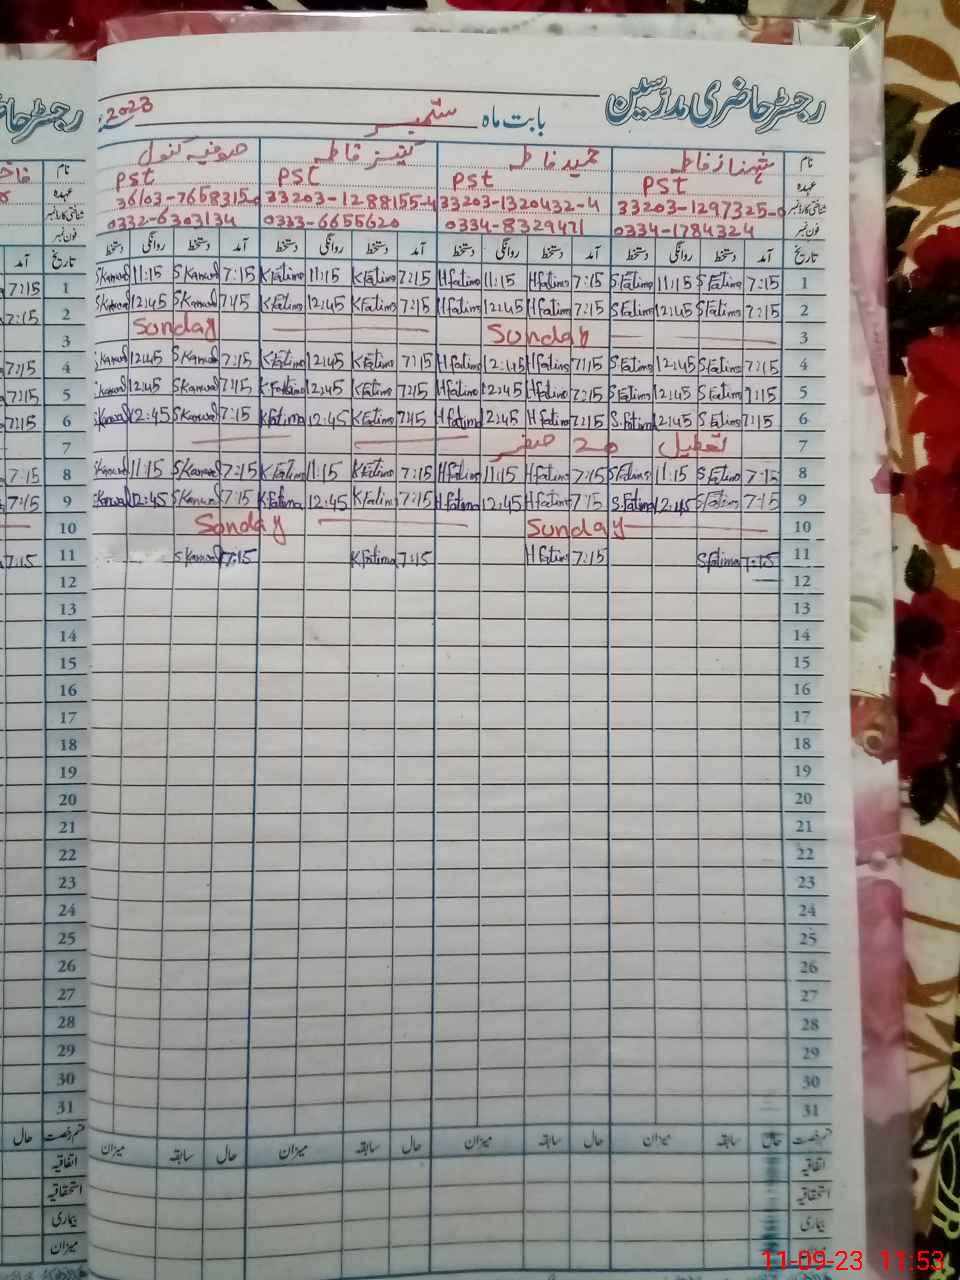 رجسٹر حاضری مدرسین
بابت ماہ ستمبر 2023ء
نام شہناز فاطمہ حمید فاطمہ کنیز فاطمہ صوفیہ کنول
عہدہ PST PST PST PST
شناختی کارڈ نمبر 33203-1297325-0 33203-1320432-4 33203-1288155-4 36103-7658315-0
فون نمبر 0334-1784324 0334-8329471 0333-6655620 0332-6303134
تاریخ آمد دستخط روانگی دستخط آمد دستخط روانگی دستخط آمد دستخط روانگی دستخط آمد دستخط روانگی دستخط
1 7:15 S Fatima 11:15 S Fatima 7:15 H Fatima 11:15 H Fatima 7:15 K Fatima 11:15 K Fatima 7:15 S Kanwal 11:15 S Kanwal
2 7:15 S Fatima 12:45 S Fatima 7:15 H Fatima 12:45 H Fatima 7:15 K Fatima 12:45 K Fatima 7:15 S Kanwal 12:45 S Kanwal
3 Sunday Sunday
4 7:15 S Fatima 12:45 S Fatima 7:15 H Fatima 12:45 H Fatima 7:15 K Fatima 12:45 K Fatima 7:15 S Kanwal 12:45 S Kanwal
5 7:15 S Fatima 12:45 S Fatima 7:15 H Fatima 12:45 H Fatima 7:15 K Fatima 12:45 K Fatima 7:15 S Kanwal 12:45 S Kanwal
6 7:15 S Fatima 12:45 S. Fatima 7:15 H Fatima 12:45 H Fatima 7:15 K Fatima 12:45 K Fatima 7:15 S Kanwal 12:45 Kanwal
7 تعطیل صفر
8 7:15 S Fatima 11:15 S Fatima 7:15 H Fatima 11:15 H Fatima 7:15 K Fatima 11:15 K Fatima 7:15 S Kanwal 11:15 S Kanwal
9 7:15 S Fatima 12:45 S. Fatima 7:15 H Fatima 12:45 H Fatima 7:15 K Fatima 12:45 K Fatima 7:15 S Kanwal 12:45 Kanwal
10 Sunday Sunday
11 7:15 S Fatima 7:15 H Fatima 7:15 K Fatima 7:15 S Kanwal
12
13
14
15
16
17
18
19
20
21
22
23
24
25
26
27
28
29
30
31
قسم رخصت حال سابقہ میزان حال سابقہ میزان حال سابقہ میزان حال سابقہ میزان
اتفاقیہ
استحقاقیہ
بیماری
میزان
11-09-23 11:53